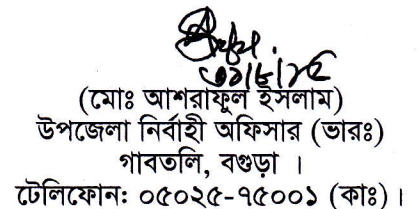 ৩১/৮/১৫
(মোঃ আশরাফুল ইসলাম)
উপজেলা নির্বাহী অফিসার (ভারঃ)
গাবতলি, বগুড়া ।
টেলিফোন: ০৫০২৫-৭৫০০১ (কাঃ) ।